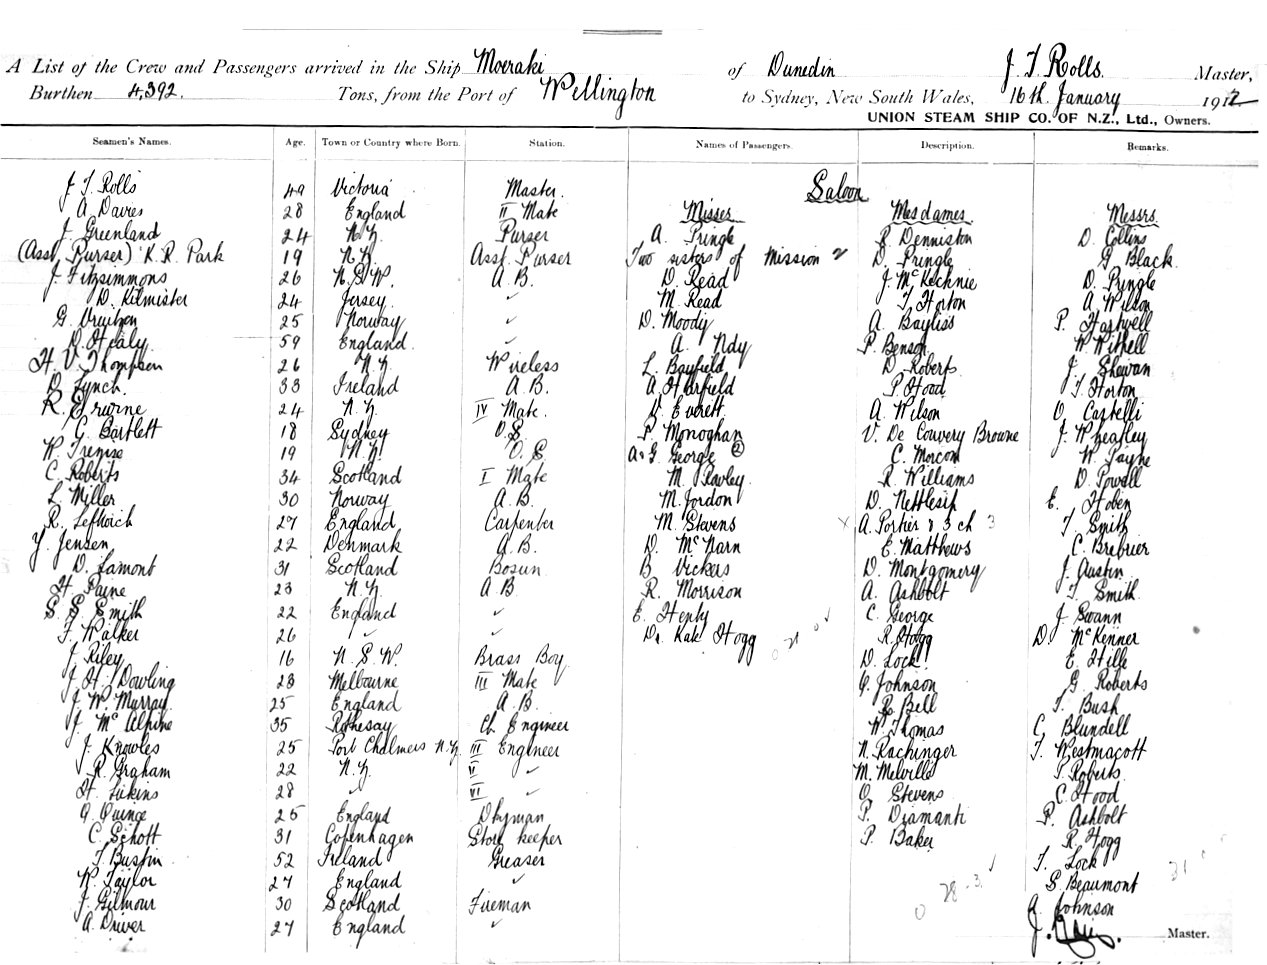 A List of the Crew and Passengers arrived in the Ship Moeraki of Dunedin J. T. Rolls. Master,
Burthen 4,392. Tons, from the Port of Wellington to Sydney, New South Wales, 16th January 1912
UNION STEAM SHIP CO. OF N.Z., Ltd., Owners.
Seamen's Names. Age. Town or Country where Born. Station. Names of Passengers. Description. Remarks.
Saloon
J T Rolls 49 Victoria Master.
A Davies 28 England II Mate Misses Mesdames. Messrs.
J. Greenland 24 N.Z. Purser A. Pringle R Denniston D. Collins
(Asst Purser) K. R. Park 19 N.Z. Asst. Purser Two sisters of Mission 2 D. Pringle G Black
J. Fitzsimmons 26 N.S.W. A.B. D. Read J. McKechnie D. Pringle
D. Kilmister 24 Jersey. ✓ M. Read T. Horton A Wilson
G. 25 Norway ✓ D. Moody A. Bayliss P. Hartwell
D. Healy 59 England. ✓ A. Ndy P. Benson W. Withell
H. V Thompson 26 N.Z. Wireless L. Bayfield D Roberts. J. Shewan
D. Lynch. 33 Ireland A.B. A. Harfield P. Hood T. Horton
R. Irvine 24 N.Z. IV Mate. V. Everett A. Wilson O. Castelli
G. Bartlett 18 Sydney O.S. P. Monoghan V. De Couvery Browne J. Wheatley
W. Trenise 19 N.Z. O.S A & G. George 2 C. Morcom W. Payne
C. Roberts 34 Scotland I Mate M. Pavley. R. Williams D. Powell
L. Miller 30 Norway A.B. M. Jordon D. Nettleship E. Hoben
R. Leftwich 27 England Carpenter M. Stevens X A. Portier & 3 ch 3 T. Smith
Y. Jensen 22 Denmark A.B. D. McNarn E. Matthews C. Brebner
D. Lamont 31 Scotland Bosun B Vickers D. Montgomery J. Austin
H. Paine 23 N.Z. A B R. Morrison A. Ashbolt T. Smith
S. S Smith 22 England ✓ E. Henty C. George J. Swann
F. Walker 26 ✓ ✓ Dr. Kate Hogg 21 R. Hogg D. McKenner
J. Riley 16 N.S.W. Brass Boy. D. Lock. E. Hille
J. H. Dowling 23 Melbourne III Mate G. Johnson G Roberts
J. W. Murray. 25 England A.B. R. Bell T. Bush
J. McAlpine 35 Rothesay Ch Engineer W. Thomas C. Blundell
J. Knowles 25 Port Chalmers N.Z. III Engineer N. Rachinger T. Westmacott
R. Graham 22 N.Z. V ✓ M. Melville T. Roberts.
H. 28 ✓ VI ✓ O. Stevens C. Hood
G. Quince 25 England P. Diamanti P. Ashbolt
C. Schott 31 Copenhagen Store keeper P. Baker R. Hogg
T. Bustin 52 Ireland Greaser T. Lock
W. Taylor 27 England ✓ 28 3 S. Beaumont 31
J. Gilmour 30 Scotland Fireman 0 A. Johnson
A. Driver 27 England ✓ Master.